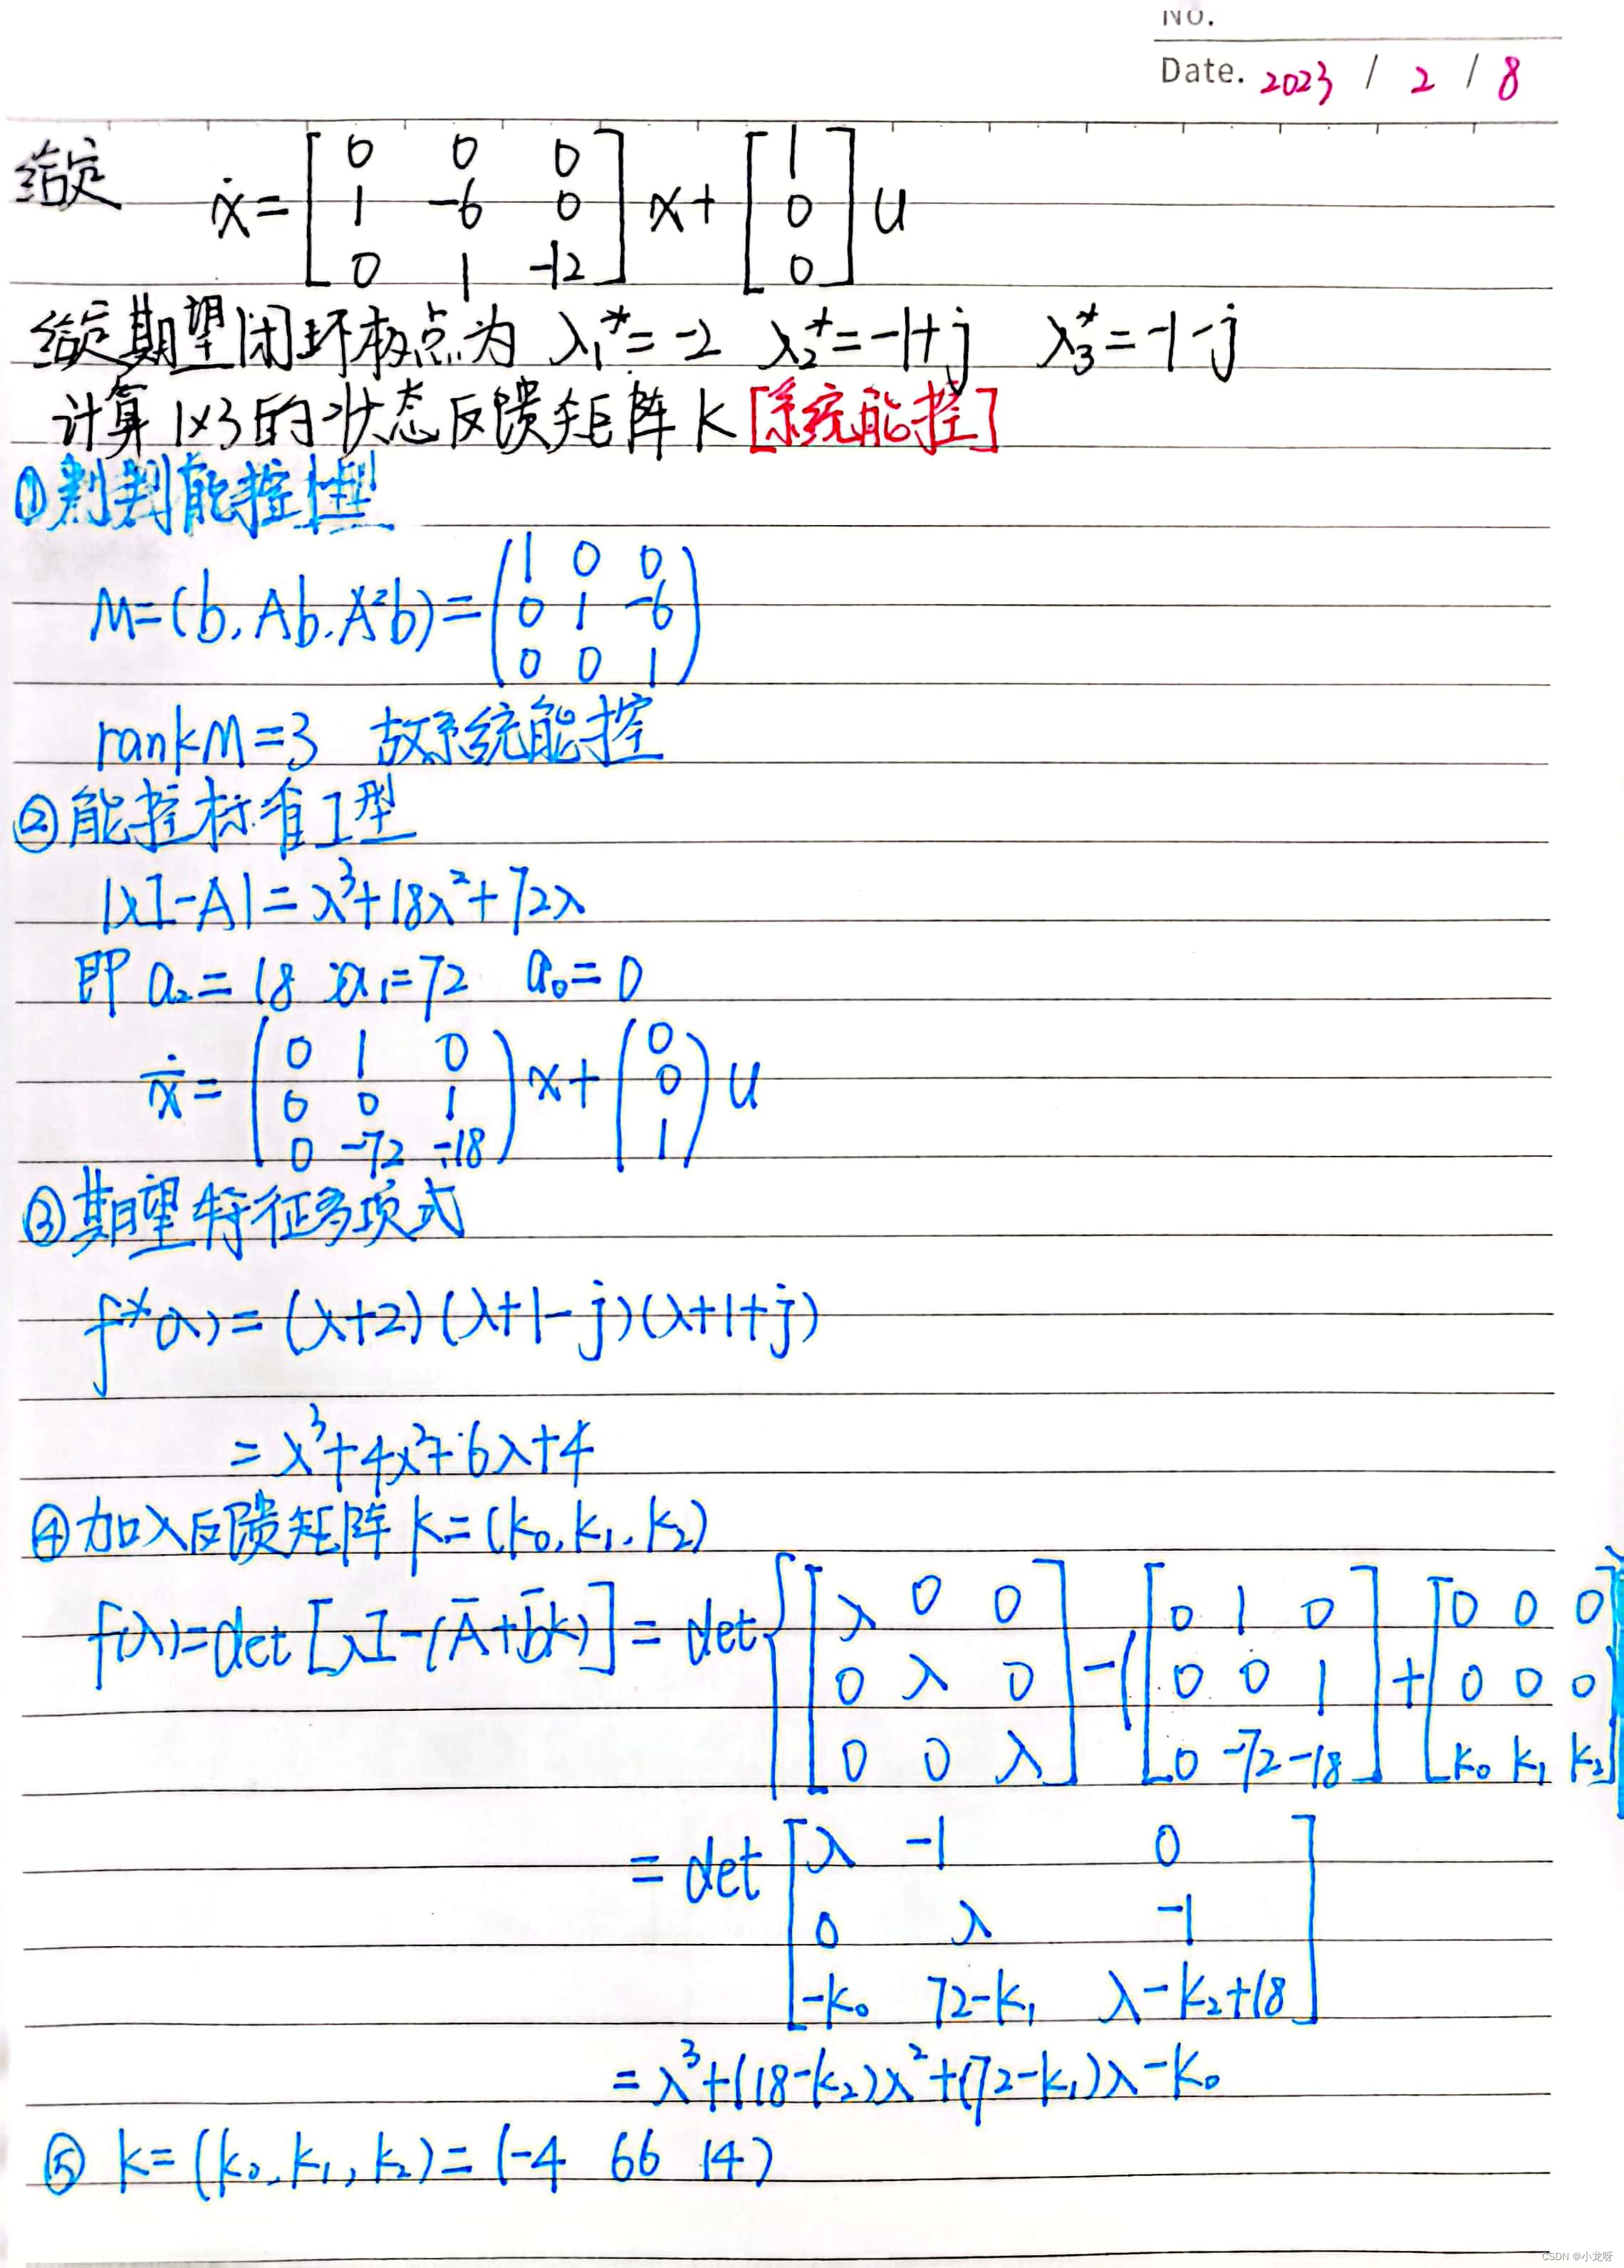 NO.
Date. 2023 / 2 / 8
给定 ẋ = [0 0 0; 1 -6 0; 0 1 -12] x + [1; 0; 0] u
给定期望闭环极点为 λ₁* = -2 λ₂* = -1+j λ₃* = -1-j
计算 1×3 的状态反馈矩阵 K [系统能控]
① 判判能控性型
M = (b, Ab, A²b) = (1 0 0; 0 1 -6; 0 0 1)
rankM = 3 故系统能控
② 能控标准I型
|λI-A| = λ³+18λ²+72λ
即 a₂ = 18 a₁ = 72 a₀ = 0
ẋ̄ = (0 1 0; 0 0 1; 0 -72 -18) x + (0; 0; 1) u
③ 期望特征多项式
f*(λ) = (λ+2)(λ+1-j)(λ+1+j)
= λ³+4λ²+6λ+4
④ 加入反馈矩阵 k = (k₀, k₁, k₂)
f(λ) = det[λI-(Ā+b̄k)] = det{[λ 0 0; 0 λ 0; 0 0 λ] - ([0 1 0; 0 0 1; 0 -72 -18] + [0 0 0; 0 0 0; k₀ k₁ k₂]
= det [λ -1 0; 0 λ -1; -k₀ 72-k₁ λ-k₂+18]
= λ³+(18-k₂)λ²+(72-k₁)λ-k₀
⑤ k = (k₀, k₁, k₂) = (-4 66 14)
CSDN @小龙呀